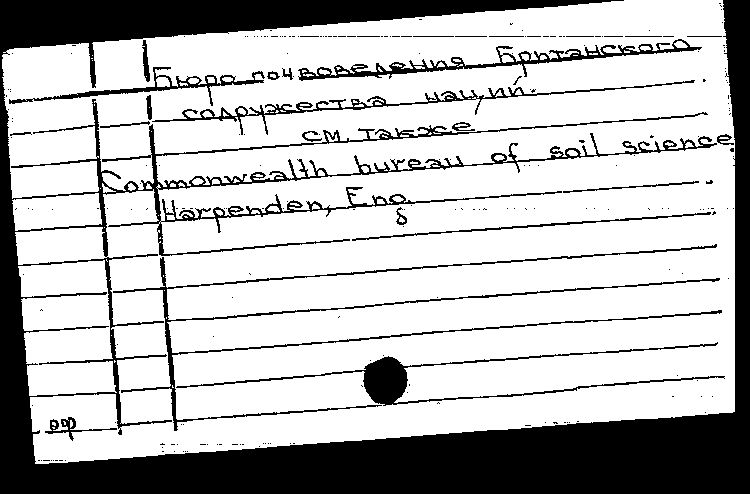 Бюро почвоведения Британского
содружества наций.
см. также
Commonwealth bureau of soil science.
Harpenden, Eng.